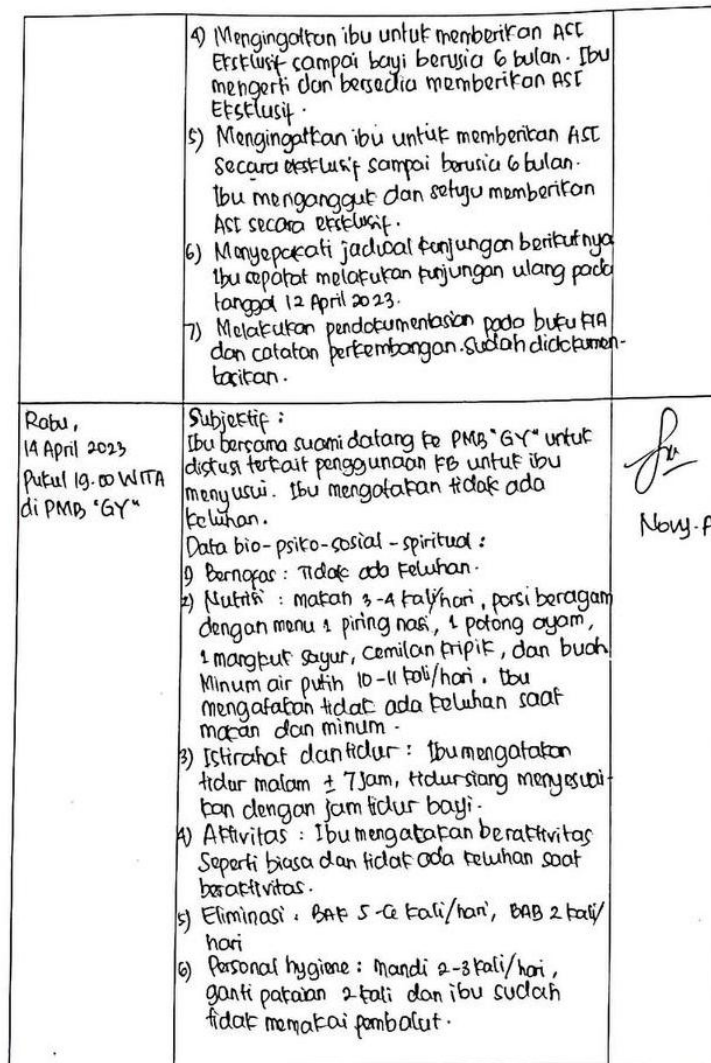 4) Mengingatkan ibu untuk memberikan ASI
Eksklusif sampai bayi berusia 6 bulan. Ibu
mengerti dan bersedia memberikan ASI
Eksklusif.
5) Mengingatkan ibu untuk memberikan ASI
Secara eksklusif sampai berusia 6 bulan.
Ibu menganggut dan setuju memberikan
ASI secara eksklusif.
6) Menyepakati jadwal kunjungan berikutnya
Ibu sepakat melakukan kunjungan ulang pada
tanggal 12 April 2023.
7) Melakukan pendokumentasian pada buku KIA
dan catatan perkembangan. Sudah didokumen-
tasikan.
Rabu,
14 April 2023
Pukul 19.00 WITA
di PMB "GY"
Subjektif :
Ibu bersama suami datang ke PMB "GY" untuk
diskusi terkait penggunaan KB untuk ibu
menyusui. Ibu mengatakan tidak ada
keluhan.
Data bio-psiko-sosial-spiritual :
1) Bernafas : Tidak ada keluhan.
2) Nutrisi : makan 3-4 kali/hari, porsi beragam
dengan menu 1 piring nasi, 1 potong ayam,
1 mangkuk sayur, cemilan kripik, dan buah
Minum air putih 10-11 kali/hari. Ibu
mengatakan tidak ada keluhan saat
makan dan minum.
3) Istirahat dan tidur : Ibu mengatakan
tidur malam ± 7 jam, tidur siang menyesuai-
kan dengan jam tidur bayi.
4) Aktivitas : Ibu mengatakan beraktivitas
Seperti biasa dan tidak ada keluhan saat
beraktivitas.
5) Eliminasi : BAK 5-6 kali/hari, BAB 2 kali/
hari
6) Personal hygiene : Mandi 2-3 kali/hari,
ganti pakaian 2 kali dan ibu sudah
tidak memakai pembalut.
Novy.P